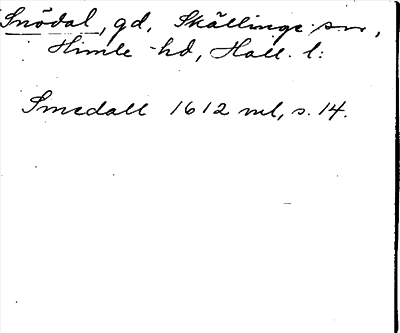 Snödal, gd, Skällinge sn,
Himle hd, Hall. l:
Smedall 1612 ml, s. 14.